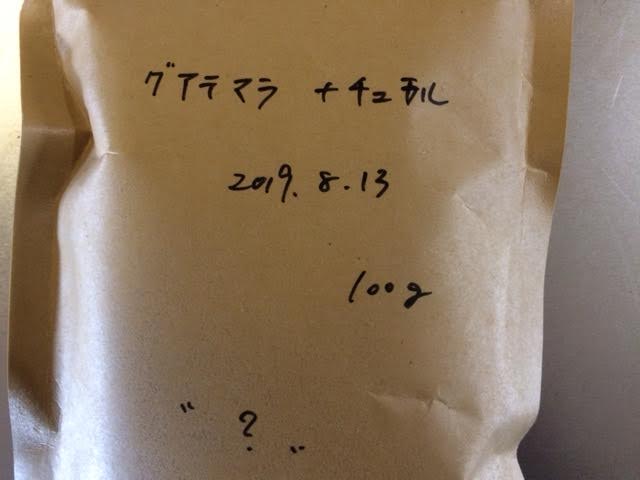 グアテマラ ナチュラル
2019.8.13
100g
〃 ? 〃